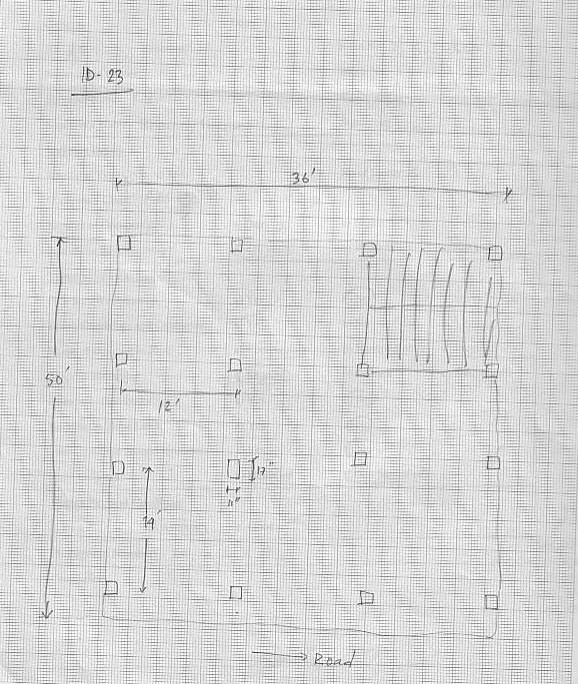 ID-23
36'
50'
12'
17"
11"
14'
Road